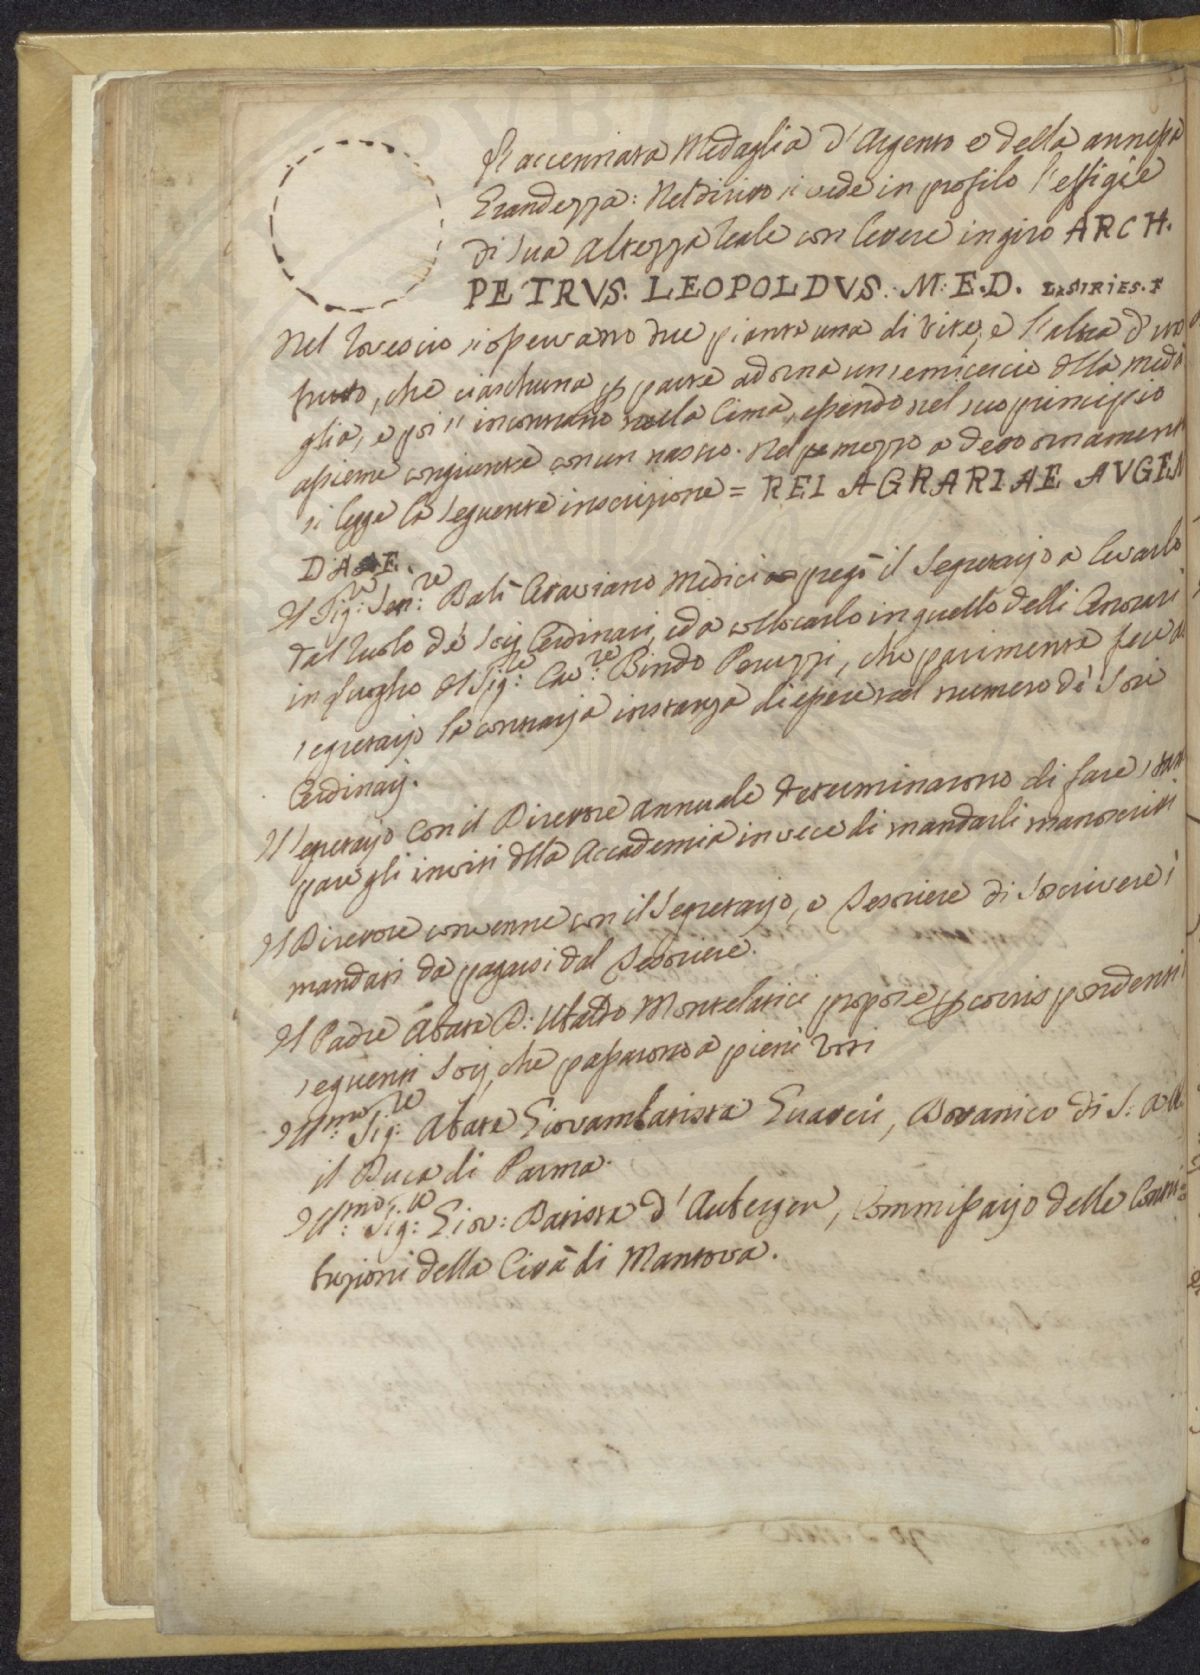 L'accennata Medaglia d'Argento e della annessa
Grandezza: Nel diritto si vede in profilo l'effigie
di Sua Altezza Reale con lettere in giro ARCH.
PETRVS. LEOPOLDVS. M. E. D. L. SIRIES. F
Nel rovescio si osservano due piante una di Vite, e l'altra d'
frutto, che ciascheduna per parte adorna un semicerchio della meda
glia, e poi s'incontrano nella Cima, essendo nel suo principio
assieme congiunte con un nastro. Nel mezzo a detto ornamento
si legge la seguente inscrizione = REI AGRARIAE AVGEN
DAE.
Il Sig:re Sen:re Balì Ottaviano Medici pregò il Segretario a levarlo
dal Ruolo de' Socij Ordinari, ed a collocarlo in quello delli Onorari
in luogho del Sig:re Cav:re Bindo Peruzzi, che parimente fece al
segretario la contraria instanza di essere nel numero de' Soci
Ordinarij.
Il Segretario con il Direttore annuale determinarono di fare stam
pare gli inviti della Accademia in vece di mandarli manoscritti
Il Direttore convenne con il Segretario, e Tesoriere di soscrivere i
mandati da pagarsi dal Tesoriere.
Il Padre Abate D: Ubaldo Montelatici propose per corrispondenti i
seguenti Socij, che passarono a pieni Voti
Ill:mo Sig:re Abate Giovambatista Guatteri, Botanico di S: A: R
il Duca di Parma.
Ill:mo Sig:re Giov: Batista d'Auberger, Commissario delle Cont
buzioni della Città di Mantova.